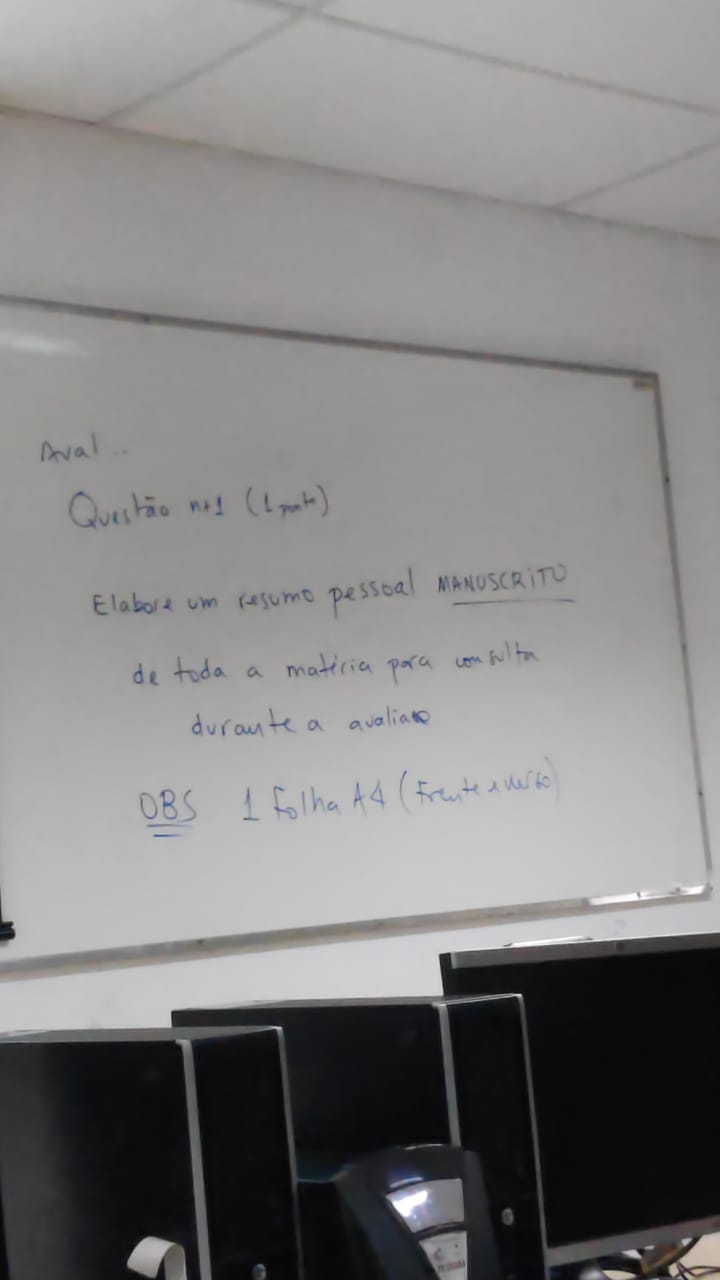 Aval...
Questão n+1 (1 ponto)
Elabore um resumo pessoal MANUSCRITO
de toda a matéria para consulta
durante a avaliação
OBS 1 Folha A4 (Frente e verso)